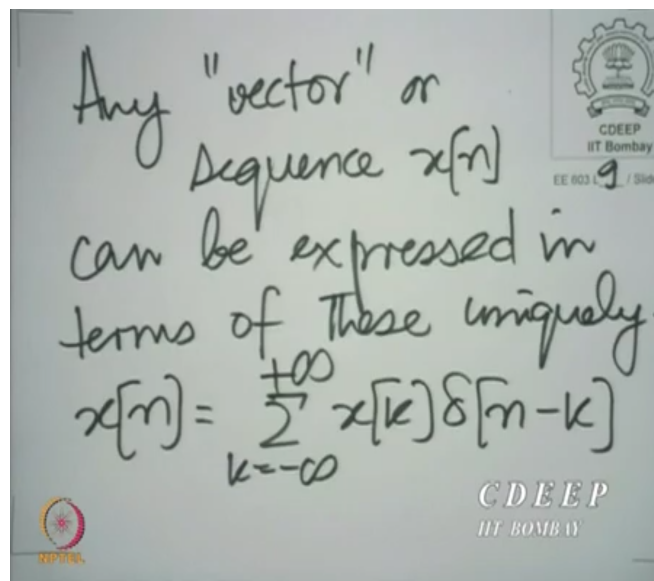 Any "vector" or
sequence x[n]
can be expressed in
terms of these uniquely.
x[n] = +∞ Σ k=-∞ x[k] δ[n-k]
CDEEP
IIT Bombay
EE 603 L 9 / Slide
CDEEP
IIT BOMBAY
NPTEL